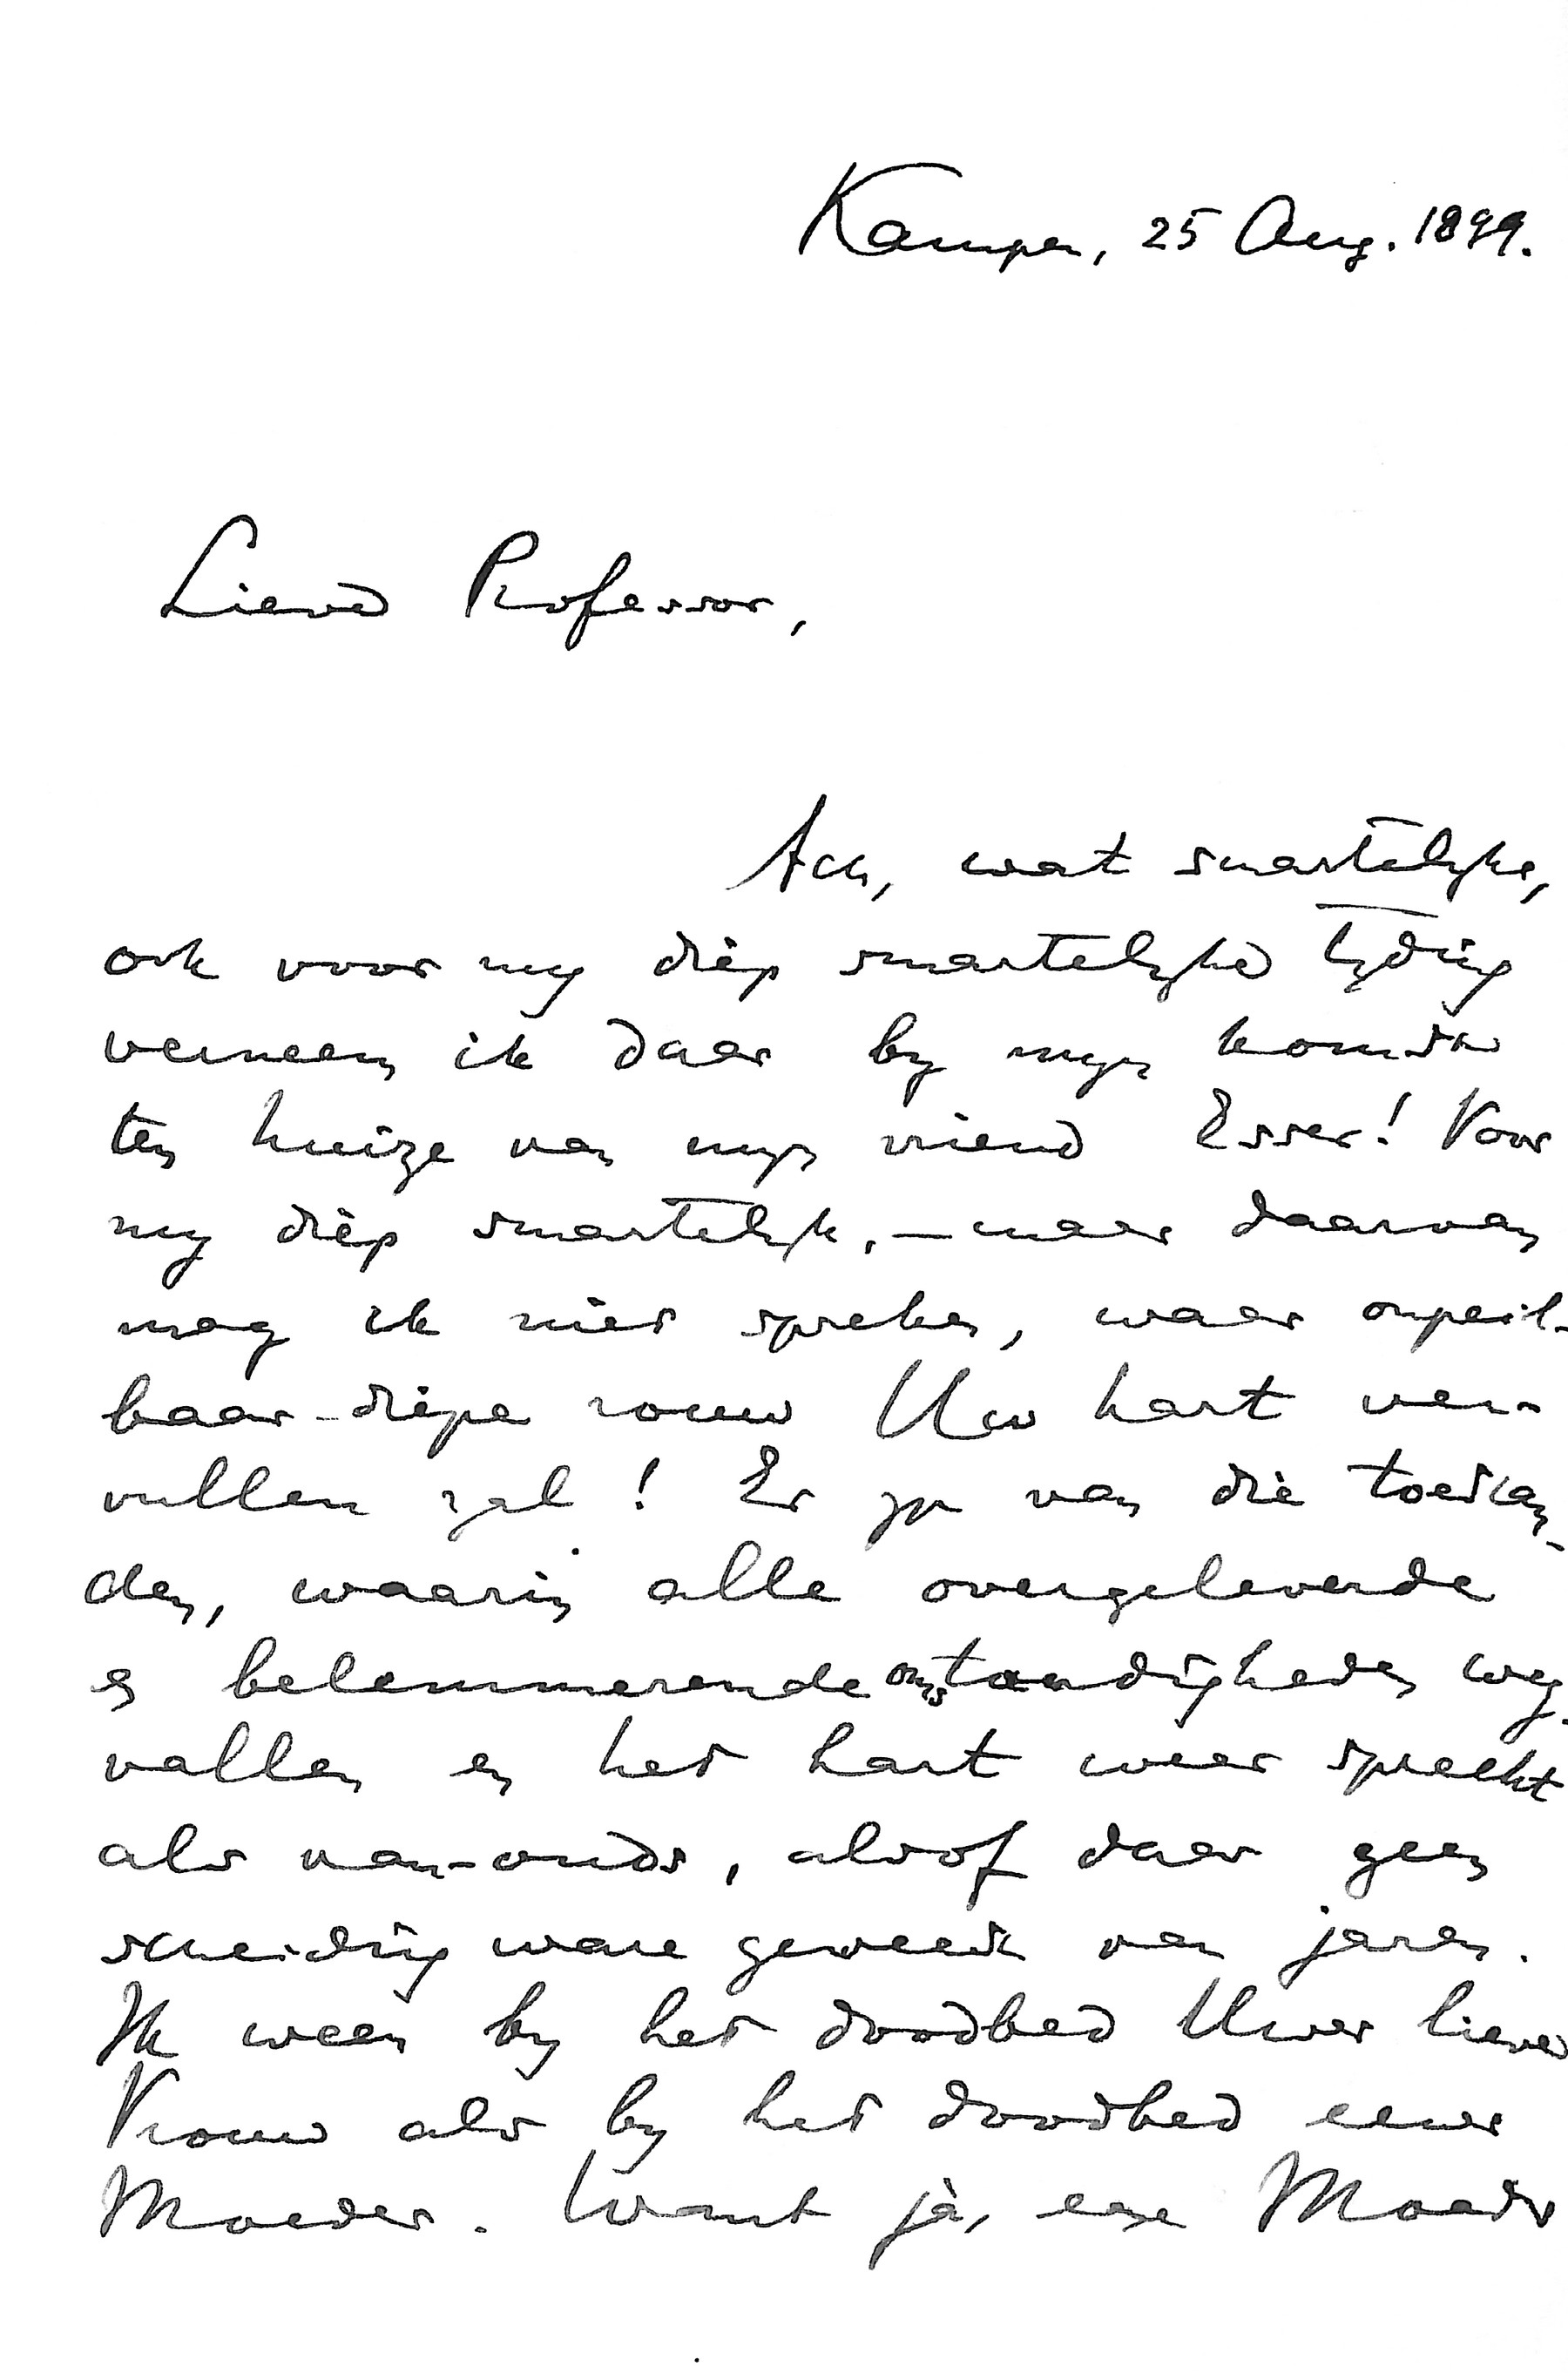 Kampen, 25 Aug. 1899.
Lieve Professor,
Ach, wat smartelyke,
ook voor my diep smartelyke tyding
verneem ik daar by myn komst
ten huize van myn vriend Esser! Voor
my diep smartelyk, – maar daarvan
mag ik niet spreken, waar onpeil-
baar-diepe rouw Uw hart ver-
vullen zal! Er zyn van die toestan-
den, waarin alle overgeleverde
en belemmerende omstandigheden weg-
vallen en het hart weer spreekt
als van-ouds, alsof daar geen
scheiding ware geweest van jaren.
Ik ween by het doodbed Uwer lieve
Vrouw als by het doodbed eener
Moeder. Want jà, eene Moeder